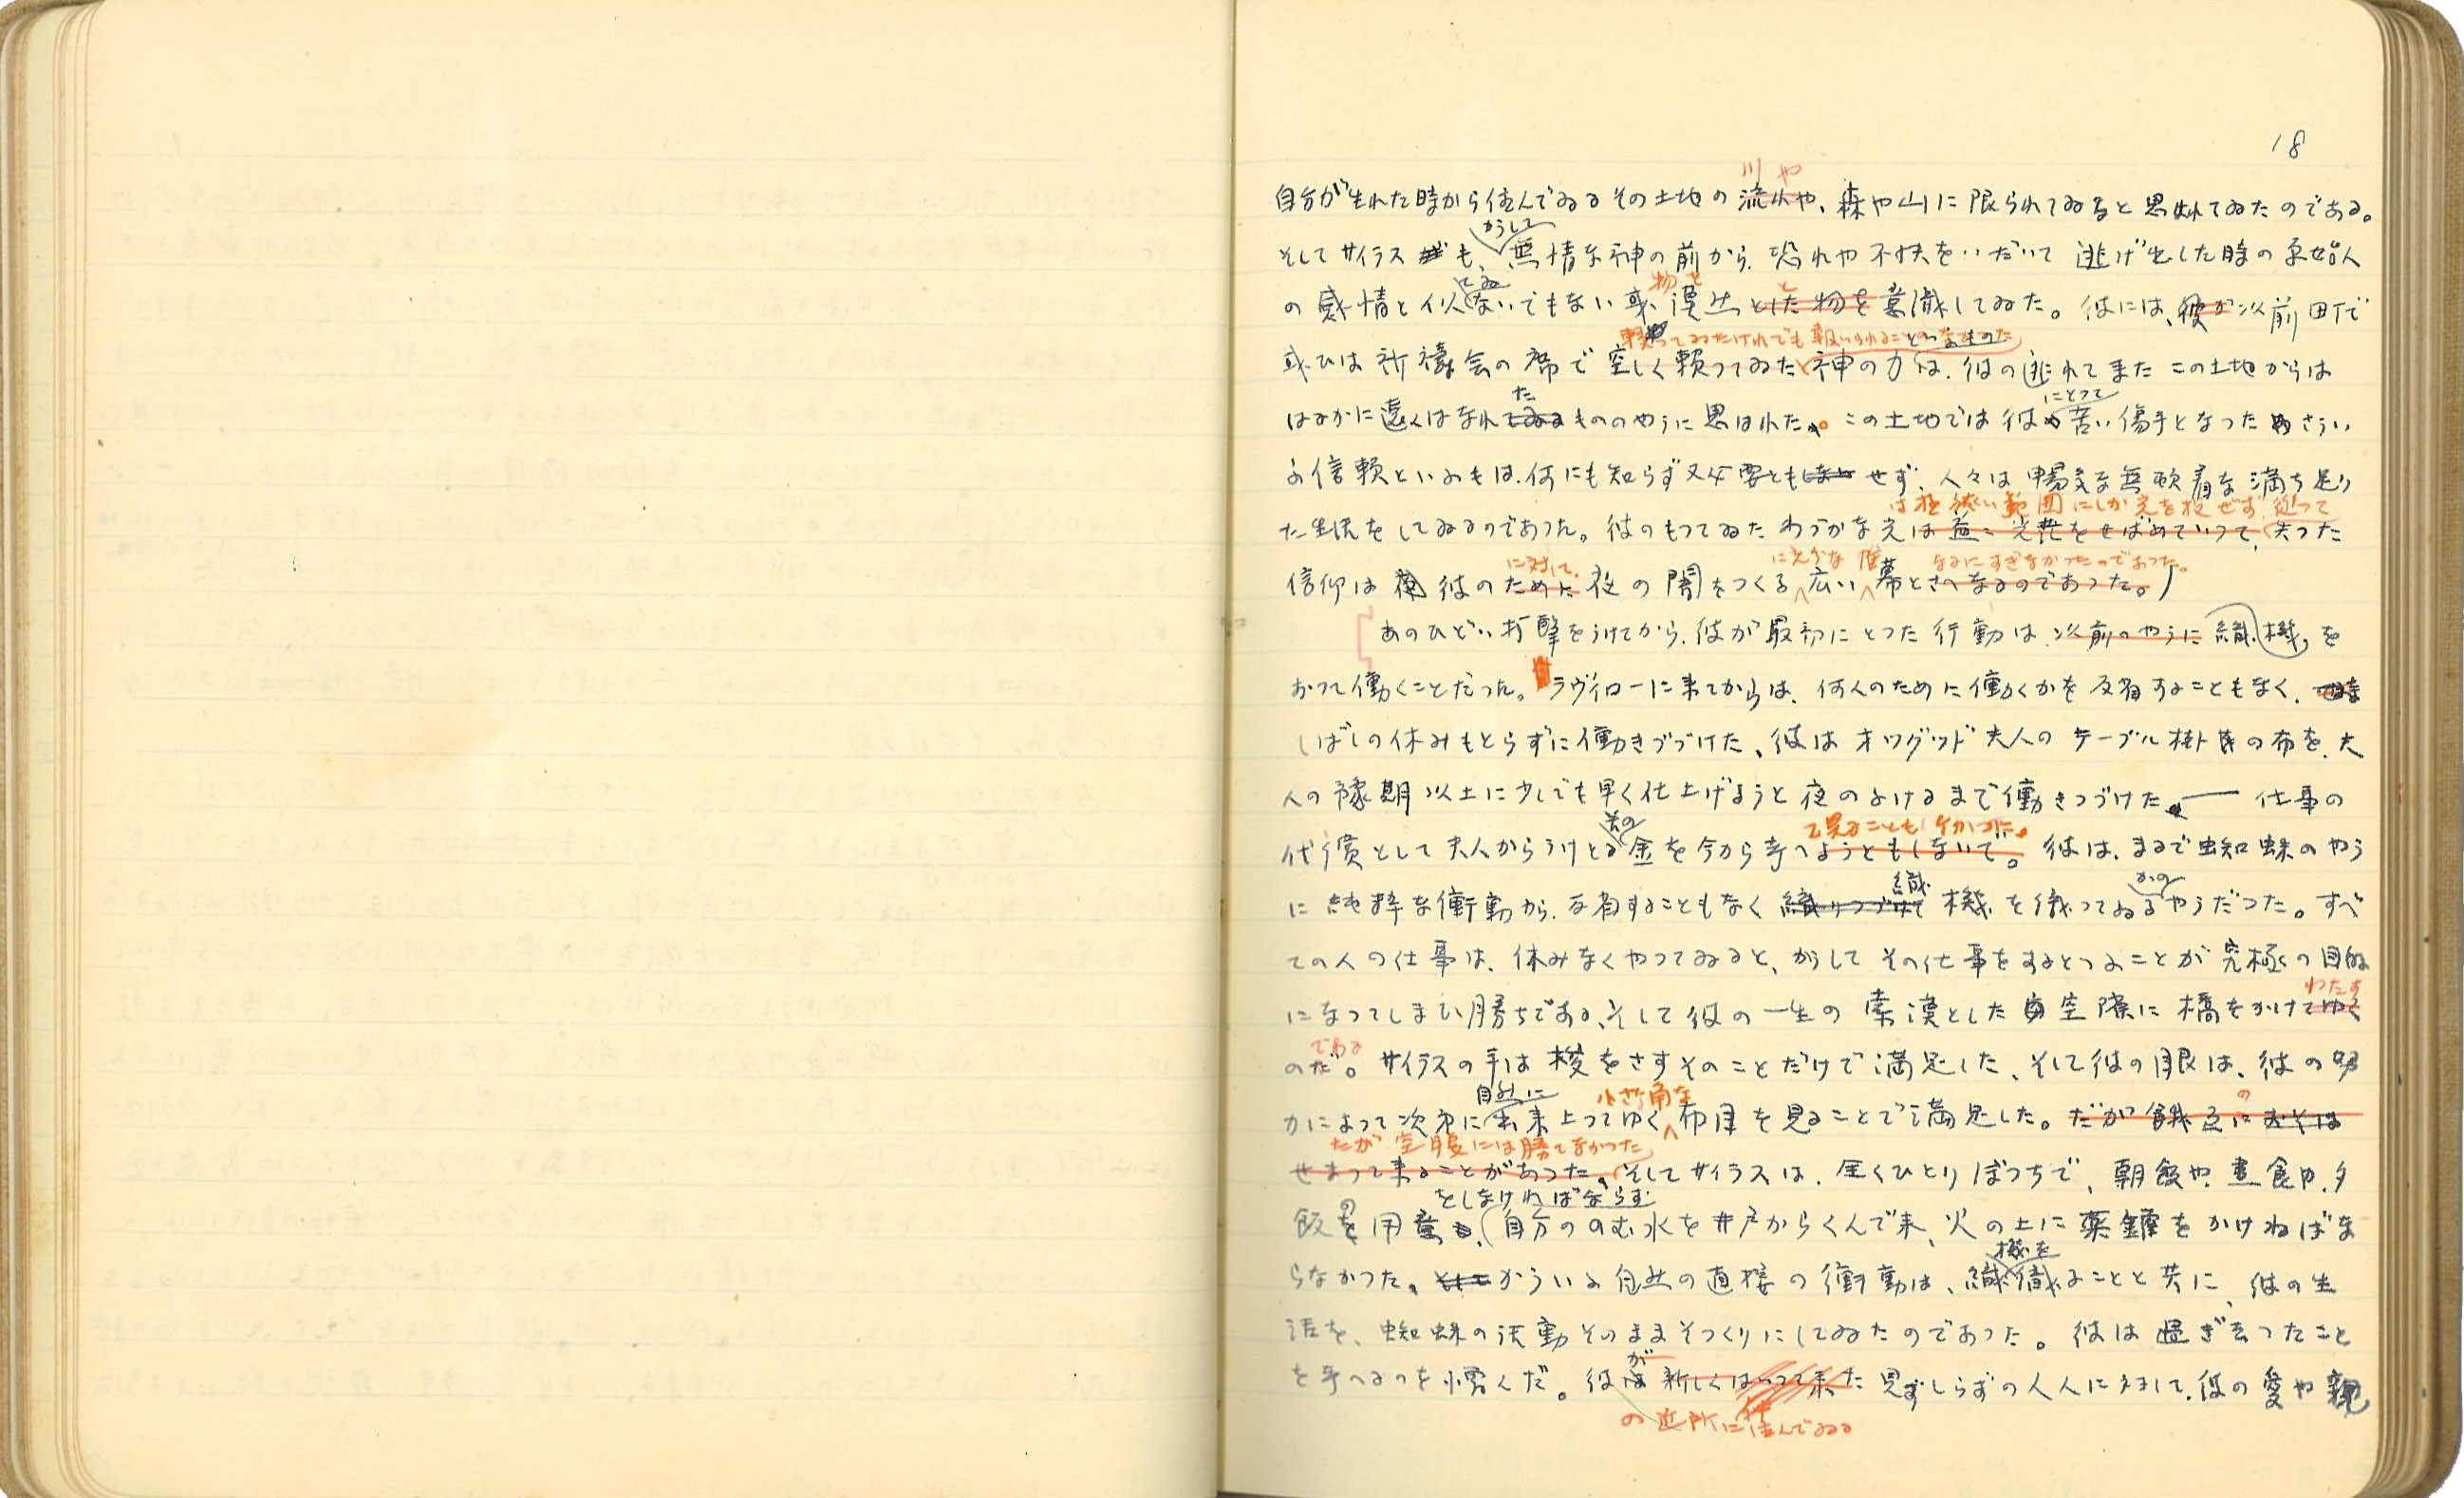 18
川や
自分が生れた時から住んでゐるその土地の流れや、森や山に限られてゐると思はれてゐたのである。
かうして
そしてサイラスも、無情な神の前から、恐れや不快をいだいて逃げ出した時の原始人
てゐ 物を と
の感情と似ないでもない或、漠然とした物を意識してゐた。彼には、彼が以前田丁で
頼つてゐたけれでも報いられることのなかつた
或ひは祈禱会の席で空しく頼つてゐた神の力は、彼の逃れてまたこの土地からは
た にとつて
はるかに遠くはなれてゐるもののやうに思はれた。この土地では彼の苦い傷手となつたさうい
ふ信頼といふもは、何にも知らず又必要ともせず、人々は暢気な無頓着な満ち足り
は極狭い範囲にしか光を投ぜず、従つて
た生活をしてゐるのであつた。彼のもつてゐたわづかな光は益々光茫をせばめていつて、失つた
に対して、 に充分な 帷 なるにすぎなかつたのであつた。
信仰は彼のために夜の闇をつくる広い幕とさへなるのであつた。
あのひどい打撃をうけてから、彼が最初にとつた行動は、以前のやうに織機を
おつて働くことだつた。ラヴィローに来てからは、何人のために働くかを反省することもなく、
しばしの休みもとらずに働きつづけた、彼はオツグッド夫人のテーブル掛の布を、夫
人の豫期以上に少しでも早く仕上げようと夜のふけるまで働きつづけた―― 仕事の
その て見ることもしなかつた。
代償として夫人からうけとる金を今から考へようともしないで。彼は、まるで蜘蛛のやう
織 かの
に純粋な衝動から、反省することもなく織りつづけて機を織つてゐるやうだつた。すべ
ての人の仕事は、休みなくやつてゐると、かうしてその仕事をするとふことが究極の目的
わたす
になつてしまひ勝ちである、そして彼の一生の索漠とした空隙に橋をかけてゆく
である
のだ。サイラスの手は梭をさすそのことだけで満足した、そして彼の眼は、彼の努
自然に 小さい角な の
力によつて次第に出来上つてゆく布目を見ることで満足した。だが餓ゑに
だが空腹には勝てなかつた
せまつて来ることがあつた。そしてサイラスは、全くひとりぼつちで、朝飯や、昼食や、夕
の をしなければならむ
飯を用意、自分ののむ水を井戸からくんで来、火の上に薬罐をかけねばな
機を
らなかつた。かういふ自然の直接の衝動は、織織ることと共に、彼の生
活を、蜘蛛の活動そのままそつくりにしてゐたのであつた。彼は過ぎ去つたこと
が
を考へるのを憎んだ。彼は新しくはいつて来た見ずしらずの人人に対して、彼の愛や親
の近所に住んでゐる